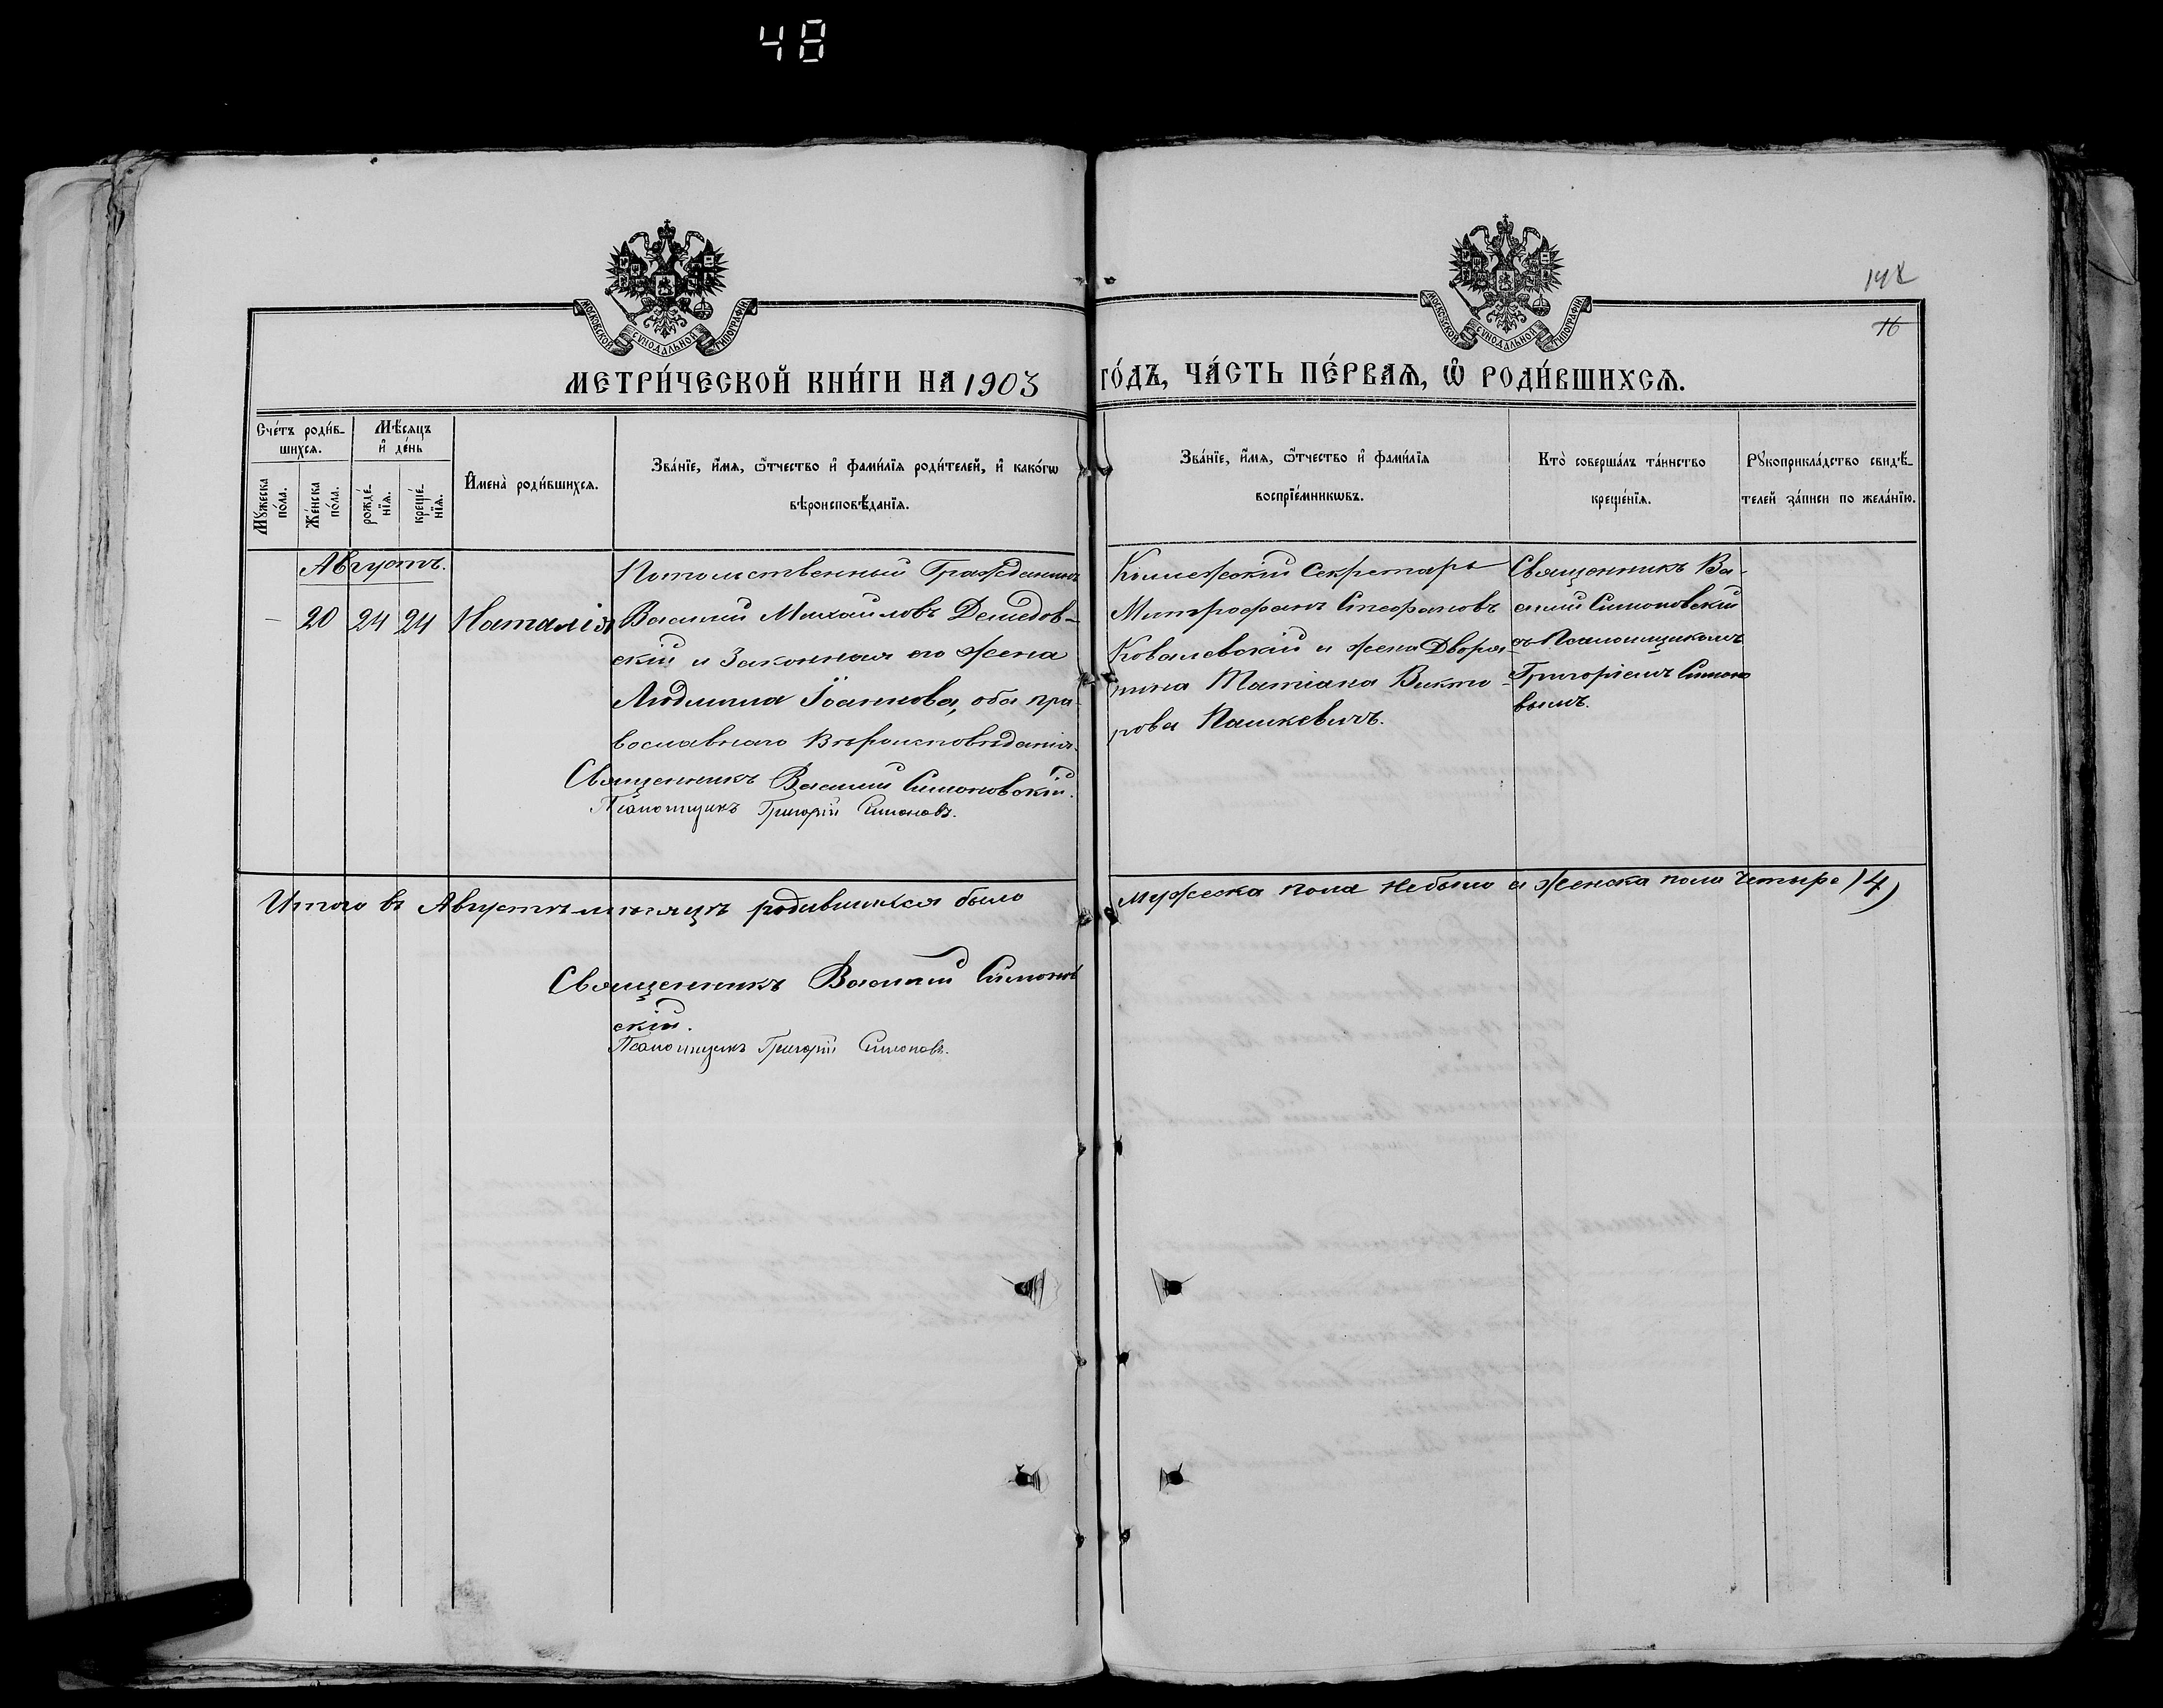 48
МОСКОВСКОЙ СУНОДАЛЬНОЙ ТИПОГРАФІИ
МОСКОВСКОЙ СУНОДАЛЬНОЙ ТИПОГРАФІИ
16
МЕТРИ́ЧЕСКОЙ КНИ́ГИ НА 1903 ГО́ДЪ, ЧА́СТЬ ПЕ́РВАѦ, Ѽ РОДИ́ВШИХСѦ.
Сче́тъ роди́в-
шихсѧ.
Мꙋжеска по́ла.
Же́нска по́ла.
Мѣ́сѧцъ
и҆ де́нь
рожде́нїѧ.
креще́нїѧ.
И҆мена̀ роди́вшихсѧ.
Зва́нїе, и҆́мѧ, ѻ҆́тчество и҆ фами́лїѧ роди́телей, и҆ како́гѡ
вѣроисповѣ́данїѧ.
Зва́нїе, и҆́мѧ, ѻ҆́тчество и҆ фами́лїѧ
воспрїе́мникѡвъ.
Кто̀ соверша́лъ та́инство
креще́нїѧ.
Рꙋкоприкла́дство свидѣ́-
телей за́писи по жела́нїю.
Августъ.
– 20 24 24 Наталія
Потомственный Гражданинъ
Василій Михаиловъ Демедов-
скій и Законная его жена
Людмила Іоаннова, оба пра-
вославнаго Вѣроисповѣданія.
Священникъ Василій Симоновскій.
Псаломщикъ Григорій Симоновъ.
Коллежскій Секретарь
Митрофанъ Стефановъ
Ковалевскій и жена Дворя-
нина Татіана Викто-
рова Пашкевичъ.
Священникъ Ва-
силій Симоновскій
съ Псаломщикомъ
Григоріемъ Симоно
вымъ.
Итого въ Августѣ мѣсяцѣ родившихся было мужеска пола не было а женска пола четыре (4)
Священникъ Василій Симонов
скій.
Псаломщикъ Григорій Симоновъ.